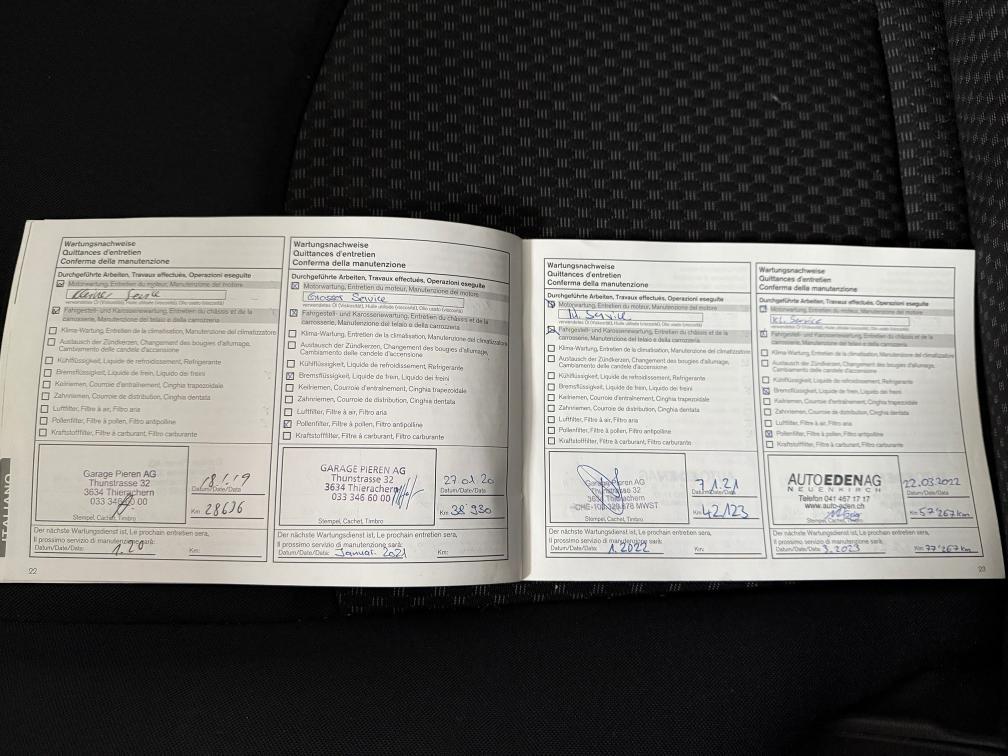 Wartungsnachweise
Quittances d'entretien
Conferma della manutenzione
Durchgeführte Arbeiten, Travaux effectués, Operazioni eseguite
Motorwartung, Entretien du moteur, Manutenzione del motore
Kleiner Service
verwendetes Öl (Viskosität), Huile utilisée (viscosité), Olio usato (viscosità)
Fahrgestell- und Karosseriewartung, Entretien du châssis et de la
carrosserie, Manutenzione del telaio e della carrozzeria
Klima-Wartung, Entretien de la climatisation, Manutenzione del climatizzatore
Austausch der Zündkerzen, Changement des bougies d'allumage,
Cambiamento delle candele d'accensione
Kühlflüssigkeit, Liquide de refroidissement, Refrigerante
Bremsflüssigkeit, Liquide de frein, Liquido dei freini
Keilriemen, Courroie d'entraînement, Cinghia trapezoidale
Zahnriemen, Courroie de distribution, Cinghia dentata
Luftfilter, Filtre à air, Filtro aria
Pollenfilter, Filtre à pollen, Filtro antipolline
Kraftstofffilter, Filtre à carburant, Filtro carburante
Garage Pieren AG
Thunstrasse 32
3634 Thierachern
033 346 60 00
Stempel, Cachet, Timbro
18.1.19
Datum/Date/Data
Km: 28636
Der nächste Wartungsdienst ist, Le prochain entretien sera,
Il prossimo servizio di manutenzione sarà:
Datum/Date/Data: 1.20 Km:
22
Wartungsnachweise
Quittances d'entretien
Conferma della manutenzione
Durchgeführte Arbeiten, Travaux effectués, Operazioni eseguite
Motorwartung, Entretien du moteur, Manutenzione del motore
Grosser Service
verwendetes Öl (Viskosität), Huile utilisée (viscosité), Olio usato (viscosità)
Fahrgestell- und Karosseriewartung, Entretien du châssis et de la
carrosserie, Manutenzione del telaio e della carrozzeria
Klima-Wartung, Entretien de la climatisation, Manutenzione del climatizzatore
Austausch der Zündkerzen, Changement des bougies d'allumage,
Cambiamento delle candele d'accensione
Kühlflüssigkeit, Liquide de refroidissement, Refrigerante
Bremsflüssigkeit, Liquide de frein, Liquido dei freini
Keilriemen, Courroie d'entraînement, Cinghia trapezoidale
Zahnriemen, Courroie de distribution, Cinghia dentata
Luftfilter, Filtre à air, Filtro aria
Pollenfilter, Filtre à pollen, Filtro antipolline
Kraftstofffilter, Filtre à carburant, Filtro carburante
GARAGE PIEREN AG
Thunstrasse 32
3634 Thierachern
033 346 60 00
Stempel, Cachet, Timbro
27.01.20
Datum/Date/Data
Km: 38'980
Der nächste Wartungsdienst ist, Le prochain entretien sera,
Il prossimo servizio di manutenzione sarà:
Datum/Date/Data: Januar 2021 Km:
Wartungsnachweise
Quittances d'entretien
Conferma della manutenzione
Durchgeführte Arbeiten, Travaux effectués, Operazioni eseguite
Motorwartung, Entretien du moteur, Manutenzione del motore
Kl. Service
verwendetes Öl (Viskosität), Huile utilisée (viscosité), Olio usato (viscosità)
Fahrgestell- und Karosseriewartung, Entretien du châssis et de la
carrosserie, Manutenzione del telaio e della carrozzeria
Klima-Wartung, Entretien de la climatisation, Manutenzione del climatizzatore
Austausch der Zündkerzen, Changement des bougies d'allumage,
Cambiamento delle candele d'accensione
Kühlflüssigkeit, Liquide de refroidissement, Refrigerante
Bremsflüssigkeit, Liquide de frein, Liquido dei freini
Keilriemen, Courroie d'entraînement, Cinghia trapezoidale
Zahnriemen, Courroie de distribution, Cinghia dentata
Luftfilter, Filtre à air, Filtro aria
Pollenfilter, Filtre à pollen, Filtro antipolline
Kraftstofffilter, Filtre à carburant, Filtro carburante
Garage Pieren AG
Thunstrasse 32
3634 Thierachern
MWST
Stempel, Cachet, Timbro
7.1.21
Datum/Date/Data
Km: 42123
Der nächste Wartungsdienst ist, Le prochain entretien sera,
Il prossimo servizio di manutenzione sarà:
Datum/Date/Data: 1.2022 Km:
Wartungsnachweise
Quittances d'entretien
Conferma della manutenzione
Durchgeführte Arbeiten, Travaux effectués, Operazioni eseguite
Motorwartung, Entretien du moteur, Manutenzione del motore
Kl. Service
verwendetes Öl (Viskosität), Huile utilisée (viscosité), Olio usato (viscosità)
Fahrgestell- und Karosseriewartung, Entretien du châssis et de la
carrosserie, Manutenzione del telaio e della carrozzeria
Klima-Wartung, Entretien de la climatisation, Manutenzione del climatizzatore
Austausch der Zündkerzen, Changement des bougies d'allumage,
Cambiamento delle candele d'accensione
Kühlflüssigkeit, Liquide de refroidissement, Refrigerante
Bremsflüssigkeit, Liquide de frein, Liquido dei freini
Keilriemen, Courroie d'entraînement, Cinghia trapezoidale
Zahnriemen, Courroie de distribution, Cinghia dentata
Luftfilter, Filtre à air, Filtro aria
Pollenfilter, Filtre à pollen, Filtro antipolline
Kraftstofffilter, Filtre à carburant, Filtro carburante
AUTO EDEN AG
NEUENKIRCH
Telefon 041 467 17 17
www.auto-eden.ch
Stempel, Cachet, Timbro
22.03.2022
Datum/Date/Data
Km: 57'267km
Der nächste Wartungsdienst ist, Le prochain entretien sera,
Il prossimo servizio di manutenzione sarà:
Datum/Date/Data: 3.2023 Km: 77'267km
23
ITALIANO